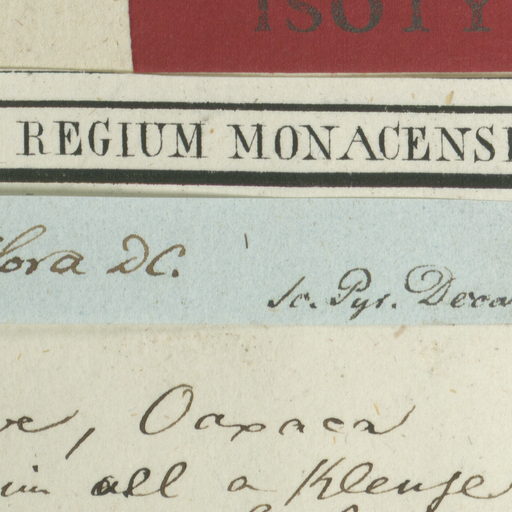 ISOTY
REGIUM MONACENS
lora DC.
sc. Pyr. Deca
, Oaxaca
all a Klenze